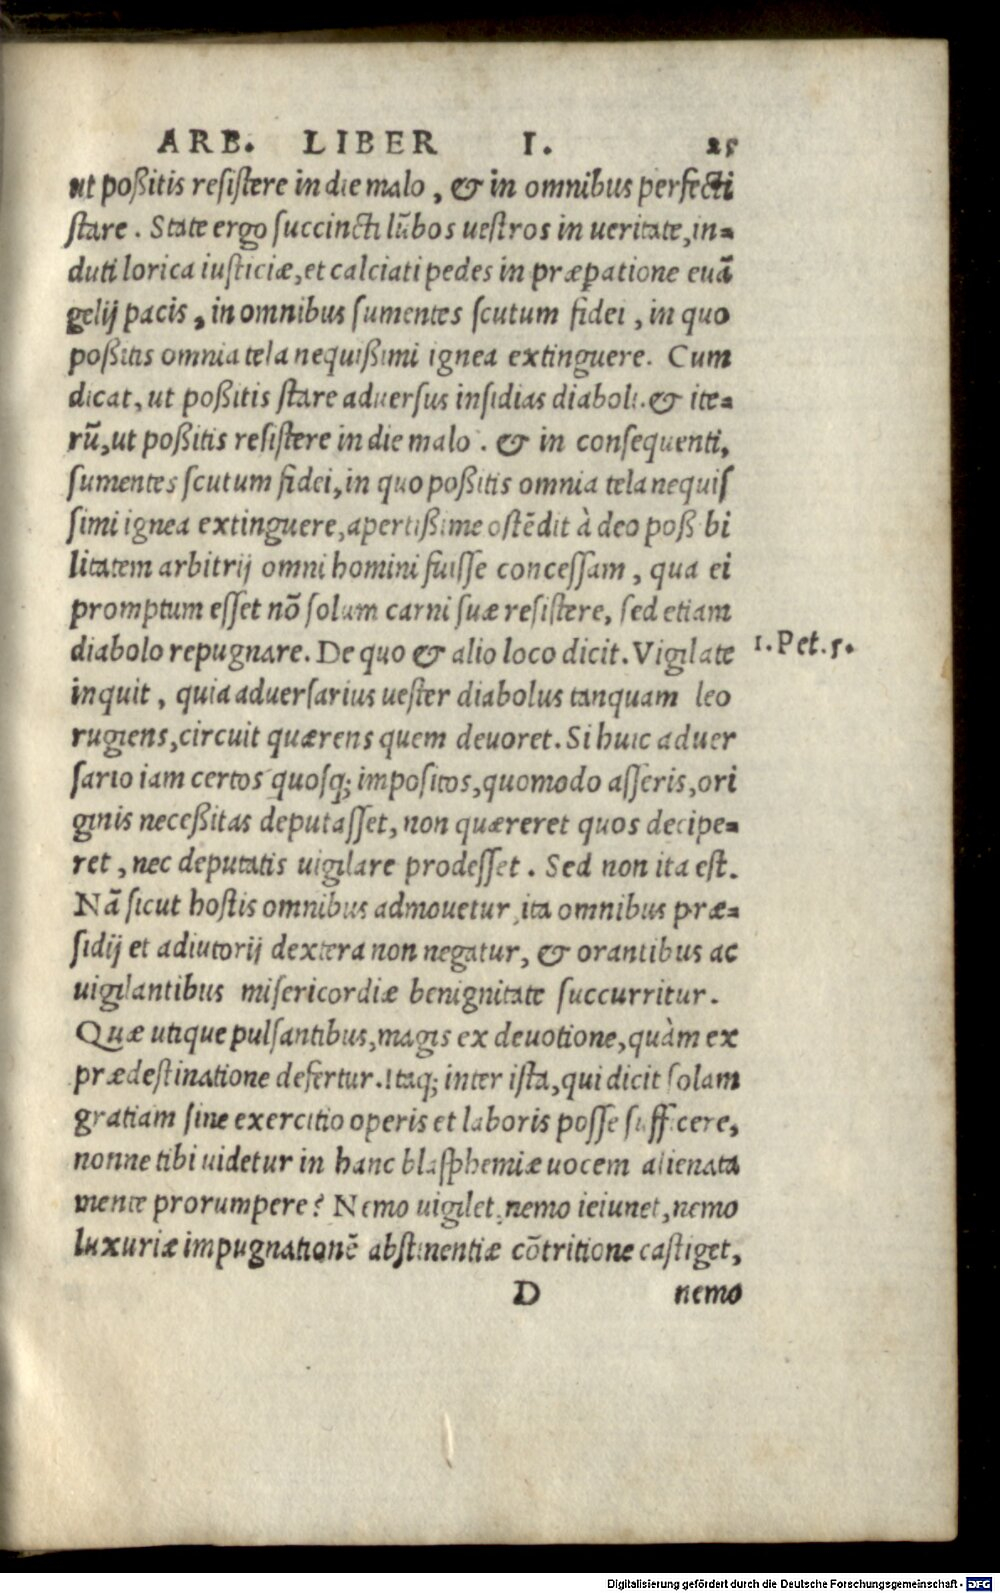 ARB. LIBER I. 25
ut poßitis resistere in die malo, & in omnibus perfecti
stare. State ergo succincti lũbos uestros in ueritate, in-
duti lorica iusticiæ, et calciati pedes in præꝑatione euã
gelij pacis, in omnibus sumentes scutum fidei, in quo
poßitis omnia tela nequißimi ignea extinguere. Cum
dicat, ut poßitis stare aduersus insidias diaboli. & ite-
rũ, ut poßitis resistere in die malo. & in consequenti,
sumentes scutum fidei, in quo poßitis omnia tela nequis
simi ignea extinguere, apertißime ostẽdit à deo poßibi
litatem arbitrij omni homini fuisse concessam, qua ei
promptum esset nõ solum carni suæ resistere, sed etiam
diabolo repugnare. De quo & alio loco dicit. Vigilate
1. Pet. 5.
inquit, quia aduersarius uester diabolus tanquam leo
rugiens, circuit quærens quem deuoret. Si huic aduer
sario iam certos quosq; impositos, quomodo asseris, ori
ginis neceßitas deputasset, non quæreret quos decipe-
ret, nec deputatis uigilare prodesset. Sed non ita est.
Nã sicut hostis omnibus admouetur, ita omnibus præ-
sidij et adiutorij dextera non negatur, & orantibus ac
uigilantibus misericordiæ benignitate succurritur.
Quæ utique pulsantibus, magis ex deuotione, quàm ex
prædestinatione defertur. Itaq; inter ista, qui dicit solam
gratiam sine exercitio operis et laboris posse sufficere,
nonne tibi uidetur in hanc blasphemiæ uocem alienata
mente prorumpere? Nemo uigilet, nemo ieiunet, nemo
luxuriæ impugnationẽ abstinentiæ cõtritione castiget,
D nemo
Digitalisierung gefördert durch die Deutsche Forschungsgemeinschaft - DFG